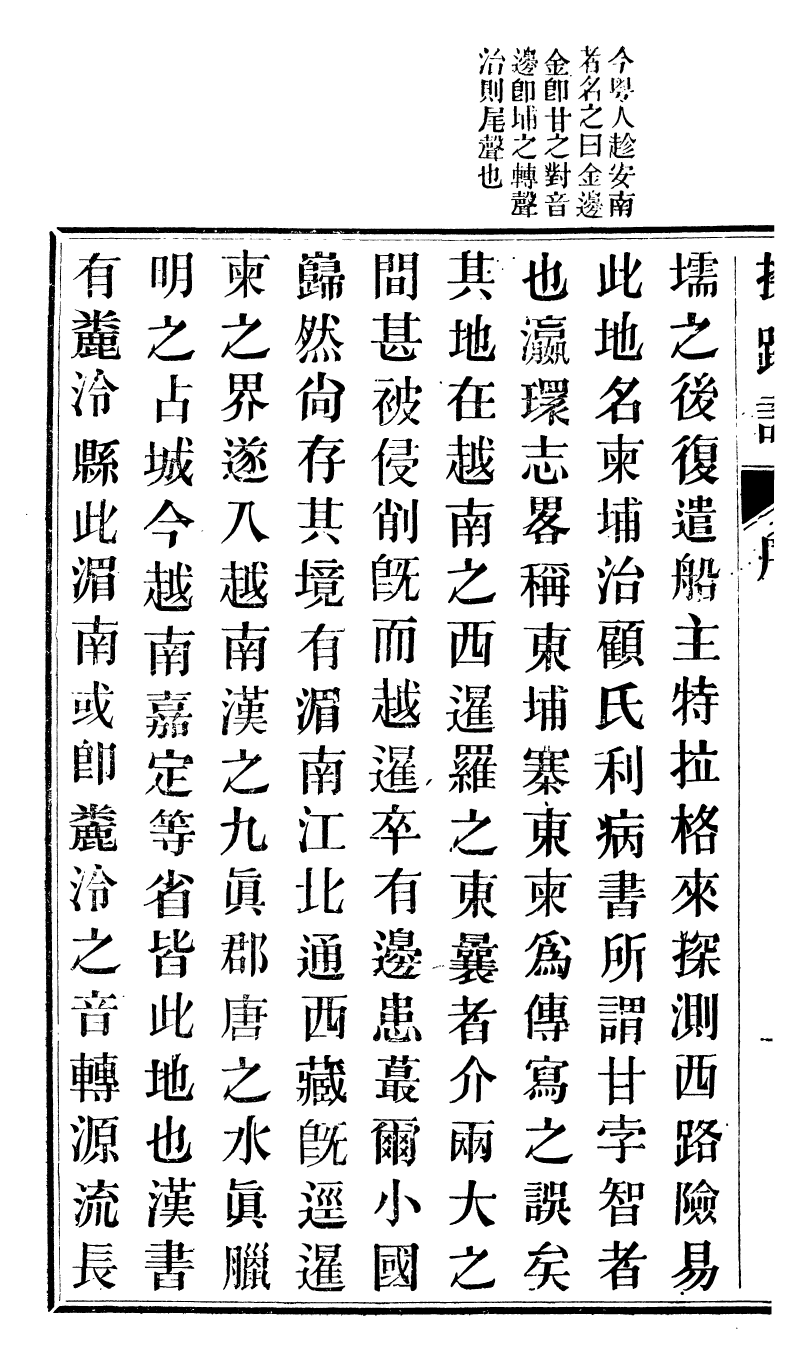 今粵人趁安南
者名之曰金邊
金卽甘之對音
邊卽埔之轉聲
治則尾聲也
壖之後復遣船主特拉格來探測西路險易
此地名柬埔治顧氏利病書所謂甘孛智者
也瀛環志畧稱東埔寨東柬爲傳寫之誤矣
其地在越南之西暹羅之東曩者介兩大之
間甚被侵削旣而越暹卒有邊患蕞爾小國
巋然尙存其境有湄南江北通西藏旣逕暹
柬之界遂入越南漢之九眞郡唐之水眞臘
明之占城今越南嘉定等省皆此地也漢書
有麊泠縣此湄南或卽麊泠之音轉源流長